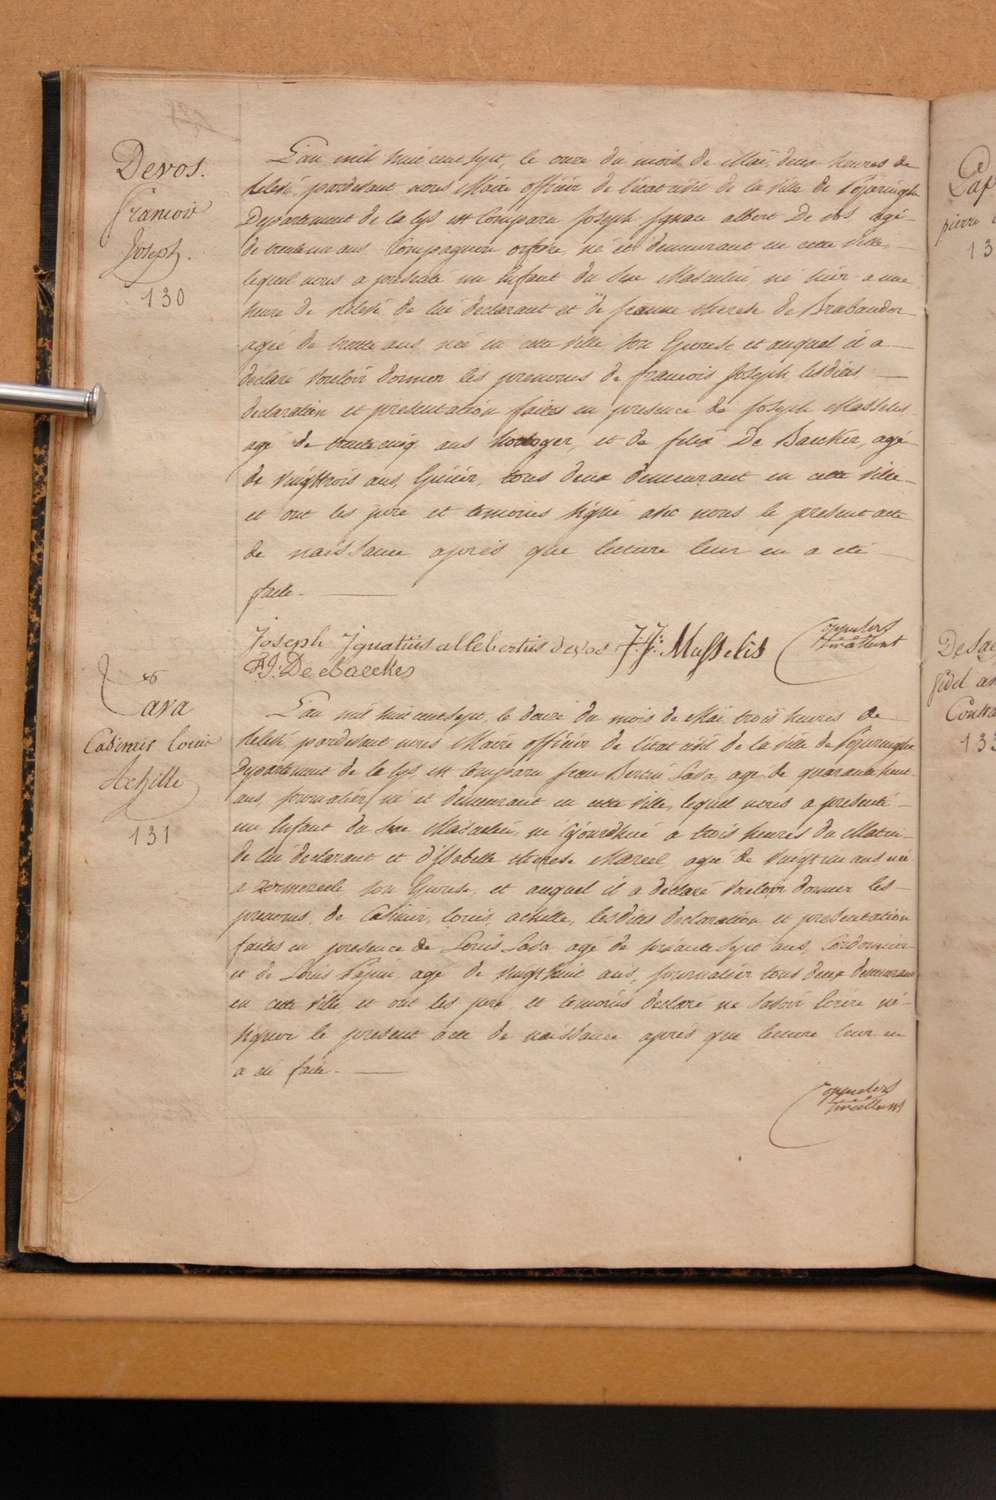 Devos.
francois
Joseph.
130
L'an mil huit cent sept, le onze du mois de Mai, deux heures de
relevé, pardevant nous Maire officier de l'état civil de la ville de Poperinghe
Departement de la Lys est Comparu Joseph Ignace albert De vos agé
de trente un ans, Compagnon orfevre, né et demeurant en cette ville,
lequel nous a presenté un Enfant du Sexe Masculin né hier a une
heure de Relevé de lui declarant et de jeanne therese de Brabander
agée de trente ans née en cette ville son Epouse et auquel il a
declaré vouloir donner les prenoms de francois Joseph lesdites
declaration et presentation faites en presence de Joseph Masselis
agé de trente cinq ans horloger, et de felix De Baecker, agé
de vingt trois ans, Epicier, tous deux demeurant en cette ville
et ont les pere et temoins signé avec nous le present acte
de naissance après que lecture leur en a eté
faite.
Joseph Ignatius allebertus devos J.F. Masselis
F.J. De Baecker
131
Cava
Casimir Louis
Achille
L'an mil huit cent sept, le douze du mois de Mai trois heures de
relevé, pardevant nous Maire officier de l'état civil de la ville de Poperinghe
Departement de la Lys est comparu jean Sava, agé de quarante huit
ans, journalier né et demeurant en cette ville, lequel nous a presenté
un Enfant du Sexe Masculin, né cejourdhui a trois heures du Matin
de lui declarant et d'Isabelle therese Mareel agée de vingt un ans née
a son Epouse, et auquel il a declaré vouloir donner les
prenoms de Casimir, louis achille, lesdites declaration et presentation
faites en presence de Louis Sava agé de soixante sept ans, Cordonnier
et de Louis Pepin agé de vingt huit ans, journalier tous deux demeurant
en cette ville et ont les pere et temoins declaré ne savoir Ecrire ni
signer le present acte de naissance après que lecture leur en
a eté faite.